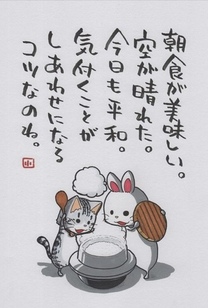 朝食が美味しい。
空が晴れた。
今日も平和。
気付くことが
しあわせになる
コツなのね。